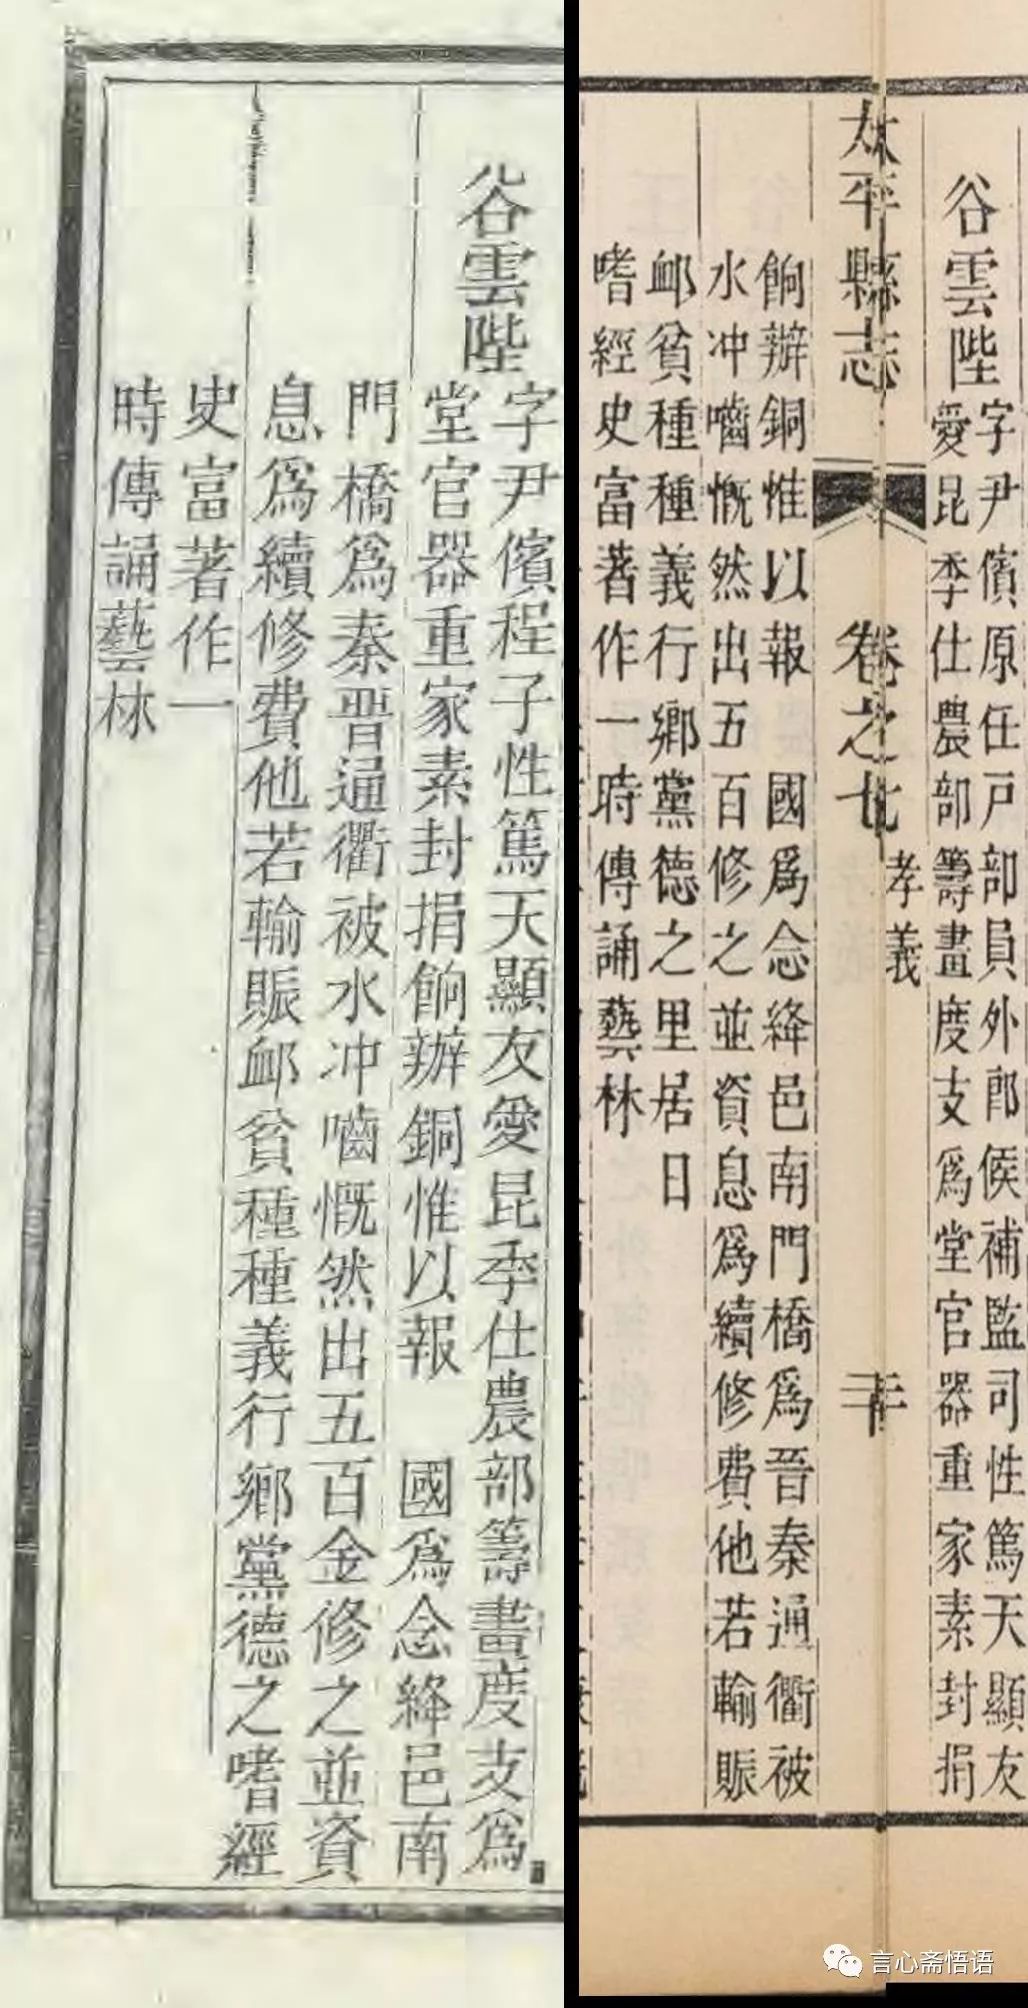 谷雲陛
字尹儐程子性篤天顯友愛昆季仕農部籌畫度支爲
堂官器重家素封捐餉辦銅惟以報 國爲念絳邑南
門橋爲秦晋通衢被水冲嚙慨然出五百金修之並資
息爲續修費他若輸賑卹貧種種義行鄉黨德之嗜經
史富著作一
時傳誦藝林
谷雲陛
字尹儐原任戸部員外郎候補監司性篤天顯友
愛昆季仕農部籌畫度支爲堂官器重家素封捐
太平縣志 卷之七 孝義
餉辦銅惟以報 國爲念絳邑南門橋爲晋秦通衢被
水冲嚙慨然出五百修之並資息爲續修費他若輸賑
卹貧種種義行鄉黨德之里居日
嗜經史富著作一時傳誦藝林
言心斋悟语